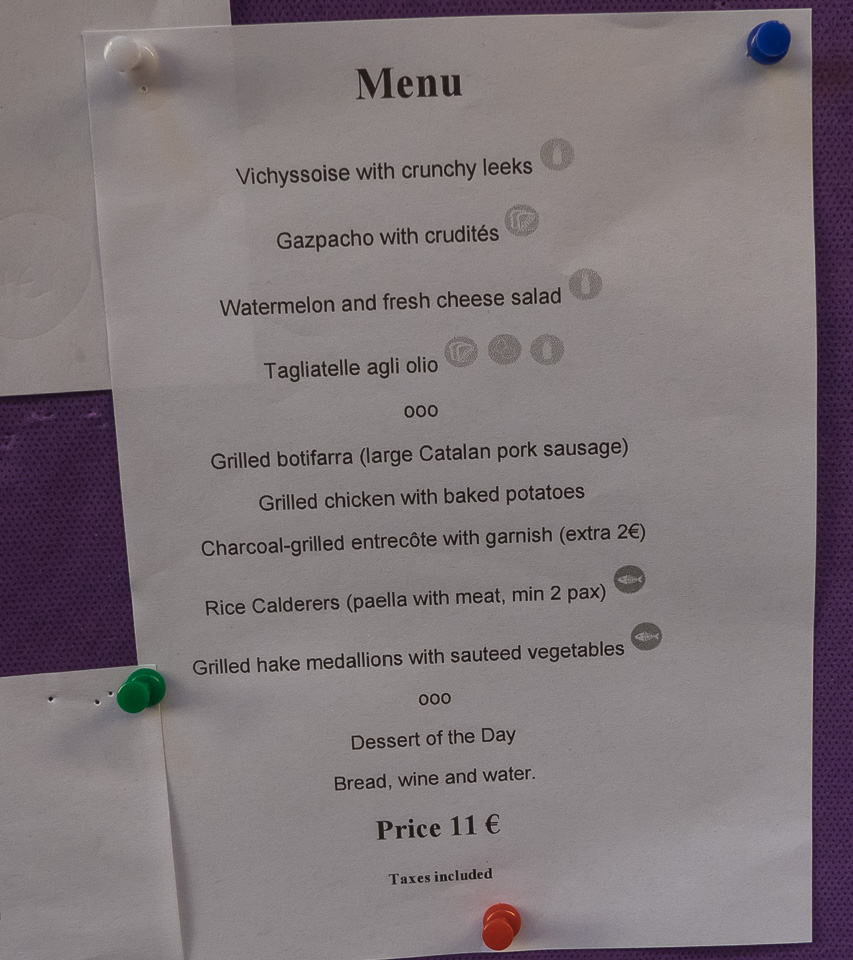 Menu
Vichyssoise with crunchy leeks
Gazpacho with crudités
Watermelon and fresh cheese salad
Tagliatelle agli olio
ooo
Grilled botifarra (large Catalan pork sausage)
Grilled chicken with baked potatoes
Charcoal-grilled entrecôte with garnish (extra 2€)
Rice Calderers (paella with meat, min 2 pax)
Grilled hake medallions with sauteed vegetables
ooo
Dessert of the Day
Bread, wine and water.
Price 11 €
Taxes included